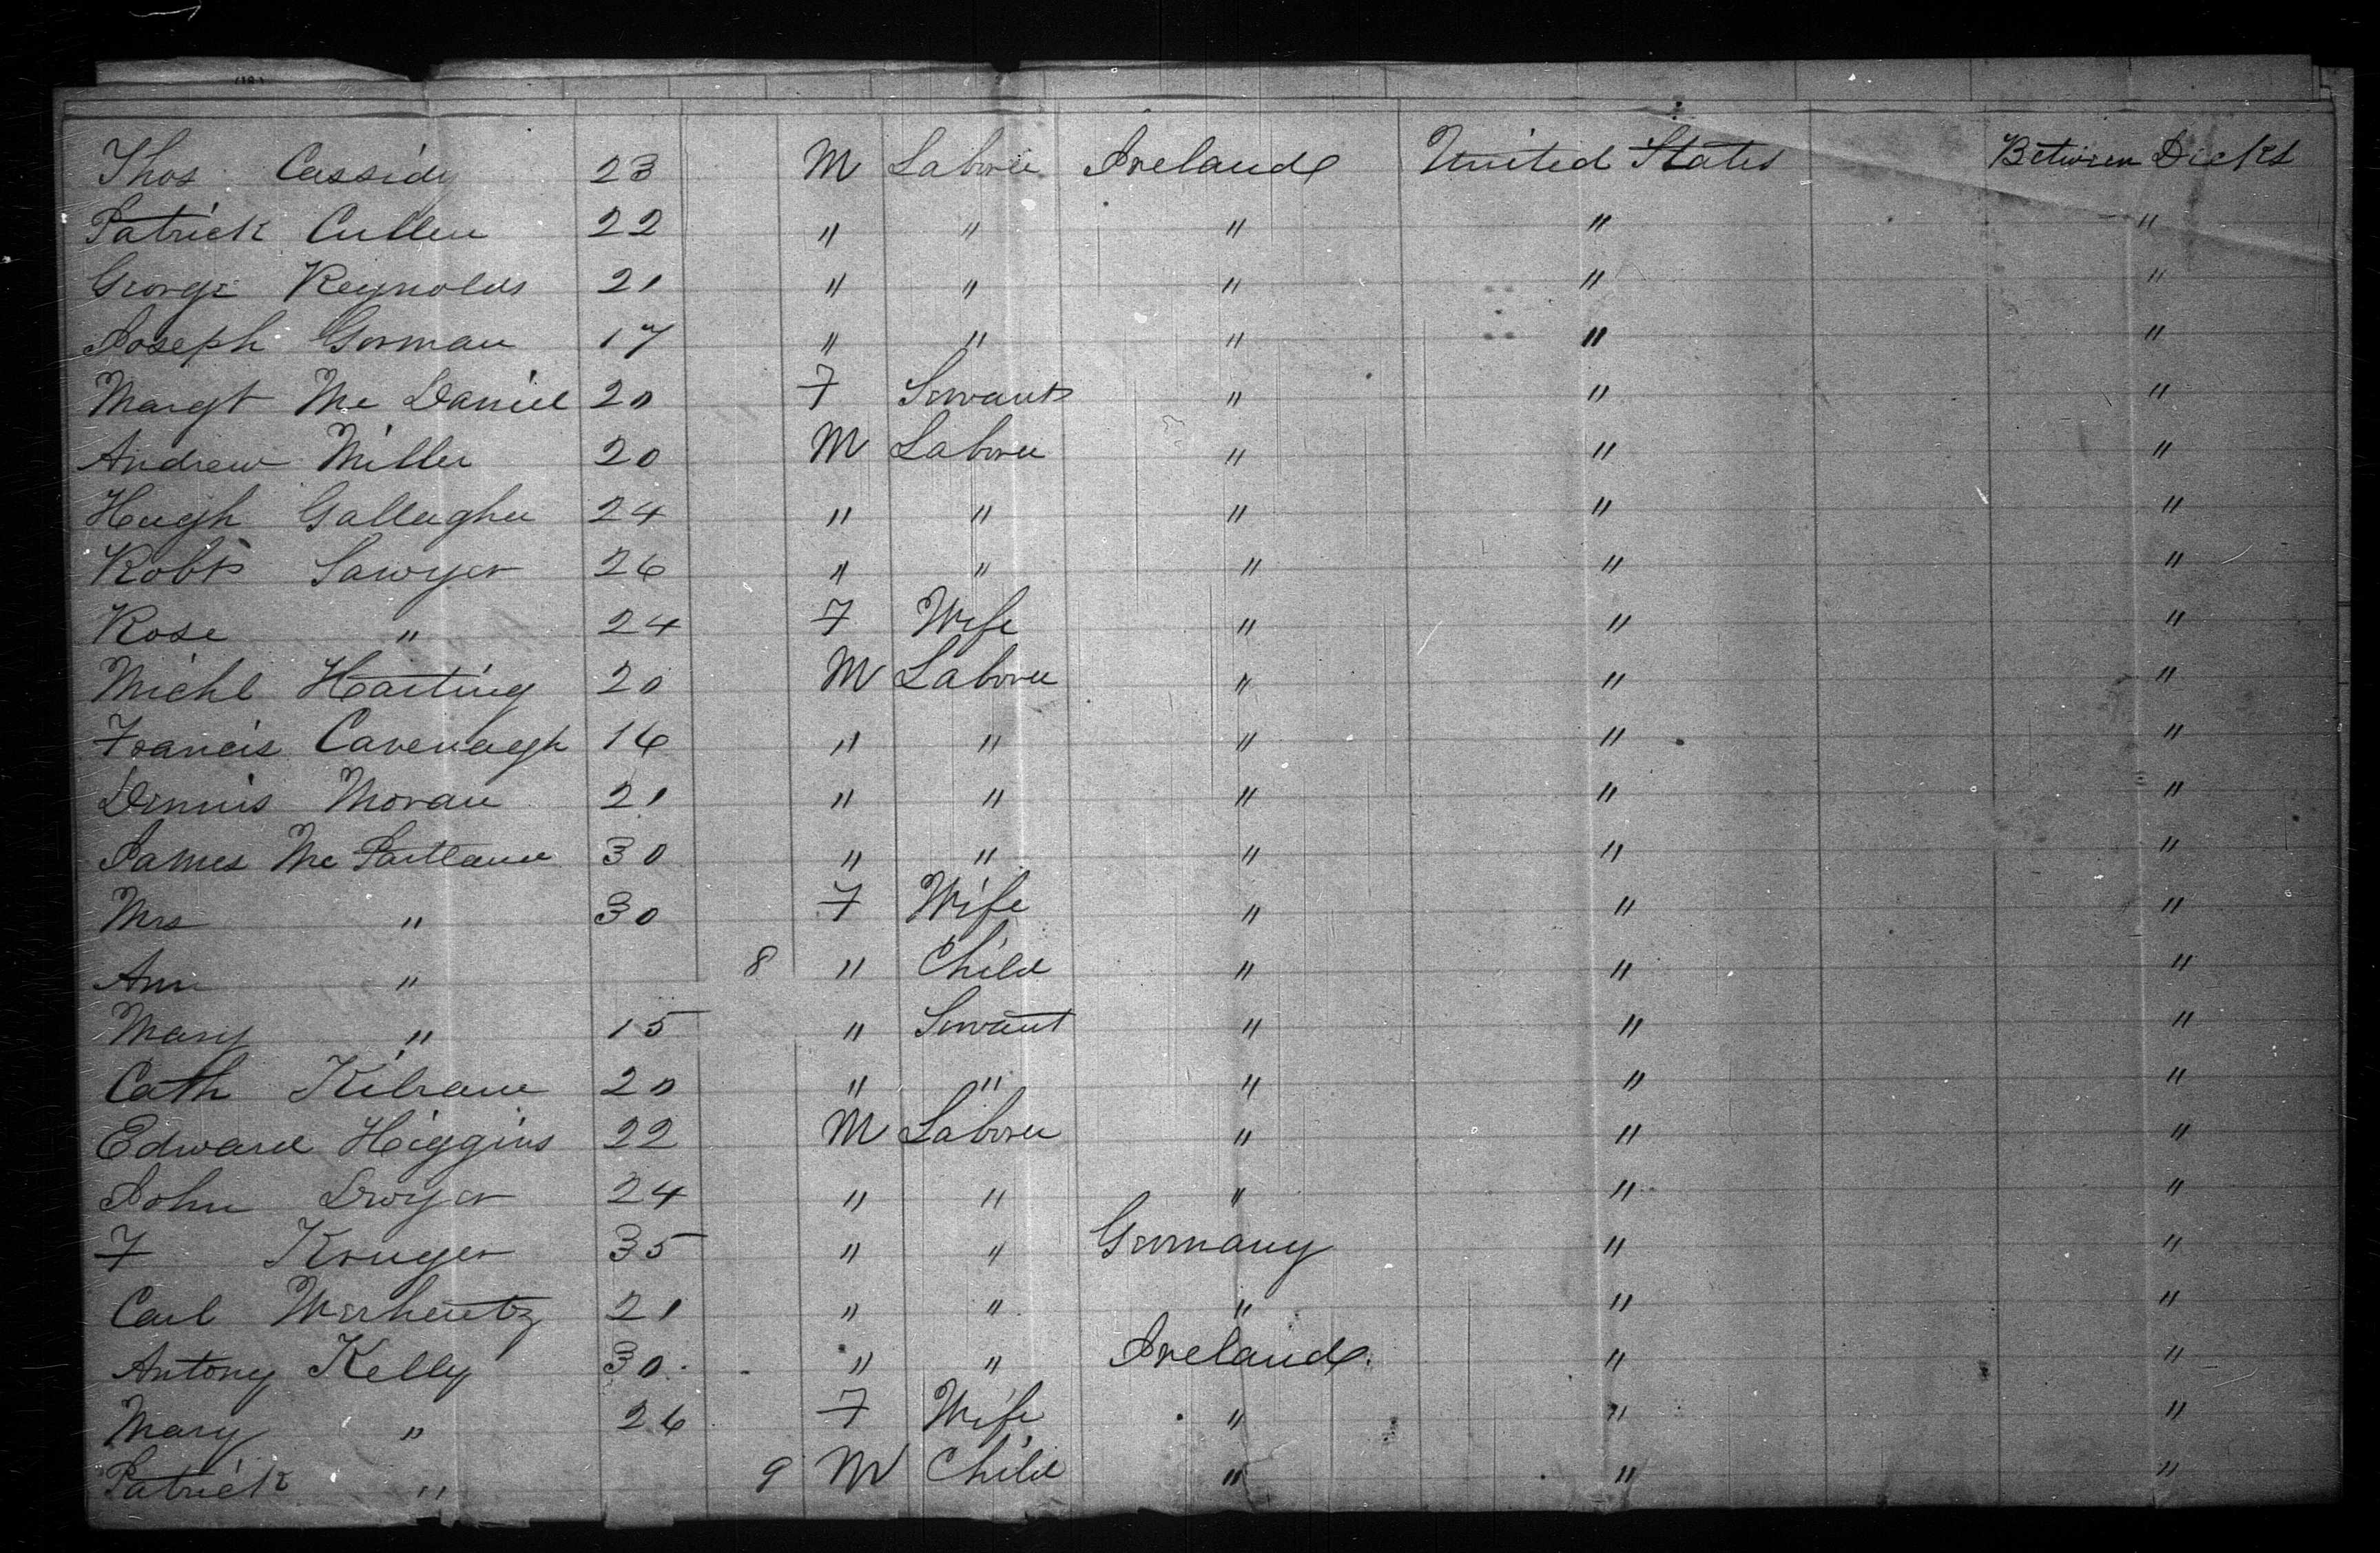 (18)
Thos Cassidy 23 M Laborer Ireland United States Between Decks
Patrick Cullen 22 " " " " "
George Reynolds 21 " " " " "
Joseph Gorman 17 " " " " "
Margt Mc Daniel 20 F Servant " " "
Andrew Miller 20 M Laborer " " "
Hugh Gallagher 24 " " " " "
Robt Sawyer 26 " " " " "
Rose " 24 F Wife " " "
Michl Harting 20 M Laborer " " "
Francis Cavenagh 16 " " " " "
Dennis Moran 21 " " " " "
James Mc Partland 30 " " " " "
Mrs " 30 F Wife " " "
Ann " 8 " Child " " "
Mary " 15 " Servant " " "
Cath Kilrane 20 " " " " "
Edward Higgins 22 M Laborer " " "
John Dwyer 24 " " " " "
F Kruger 35 " " Germany " "
Carl 21 " " " " "
Antony Kelly 30 " " Ireland " "
Mary " 26 F Wife " " "
Patrick " 9 M Child " " "